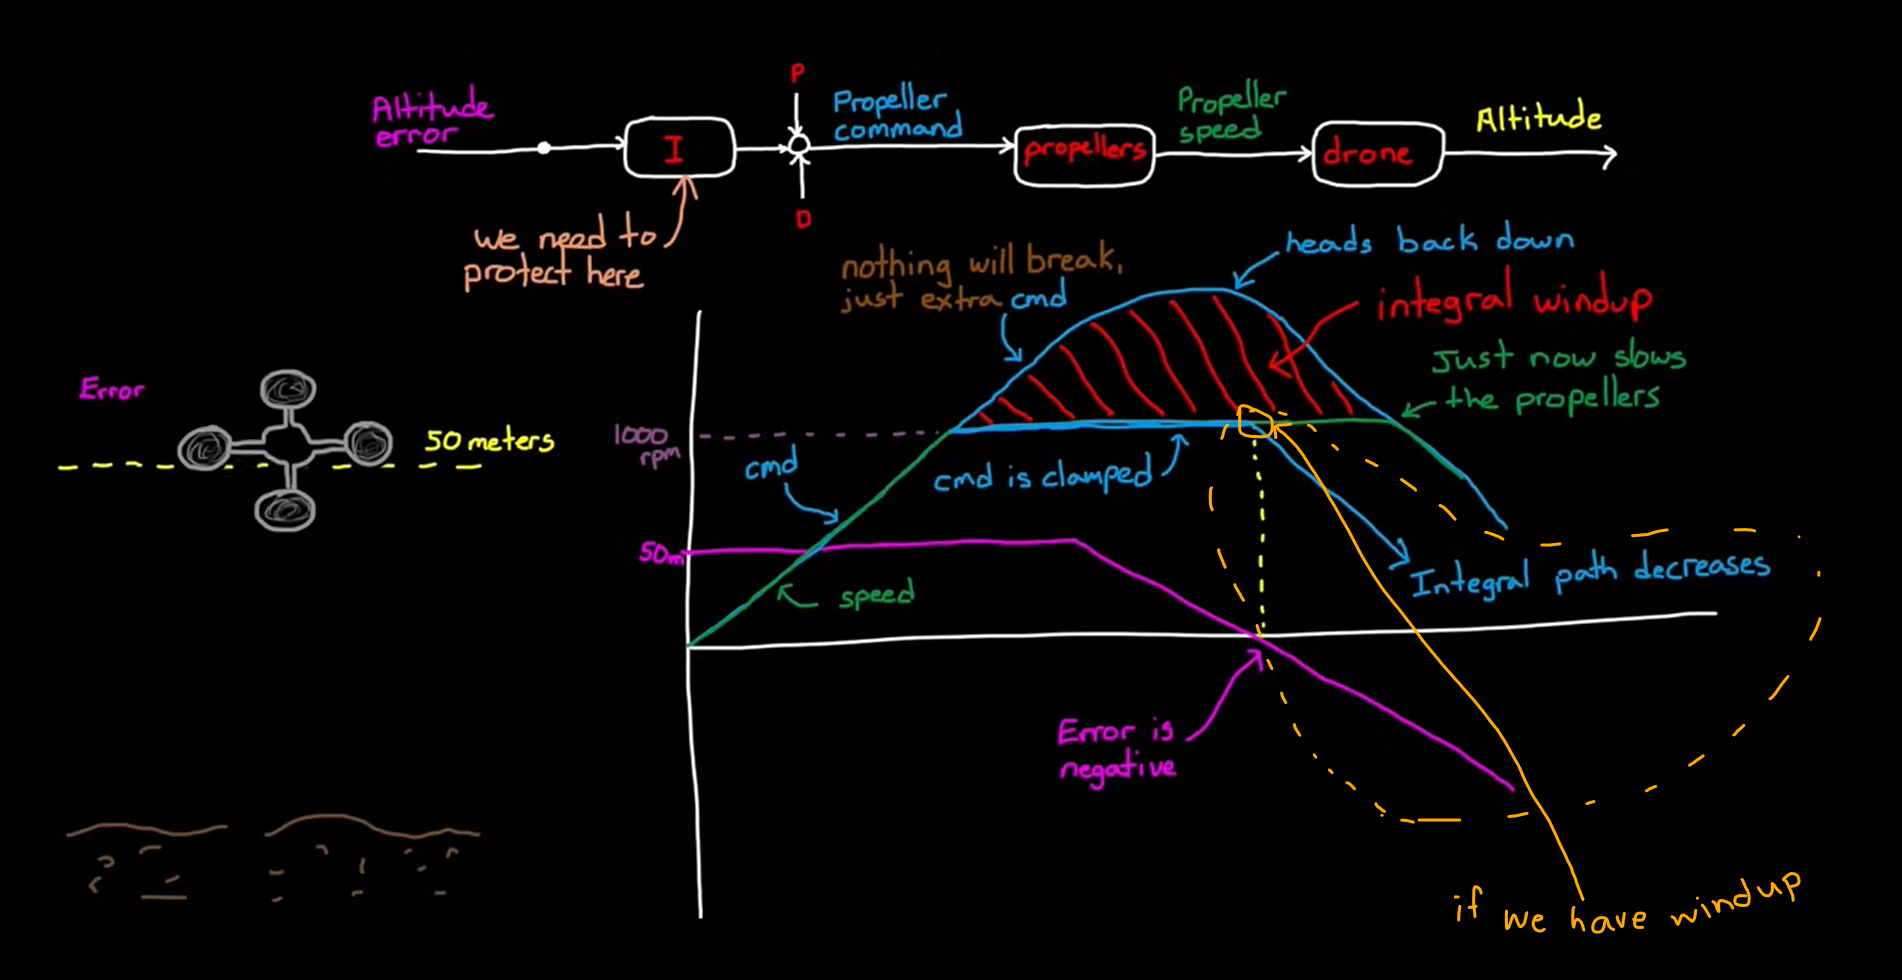 Altitude
error
I
P
D
Propeller
command
propellers
Propeller
speed
drone
Altitude
we need to
protect here
nothing will break,
just extra cmd
heads back down
integral windup
Just now slows
the propellers
Error
50 meters
1000
rpm
cmd
cmd is clamped
50m
speed
Integral path decreases
Error is
negative
if we have windup